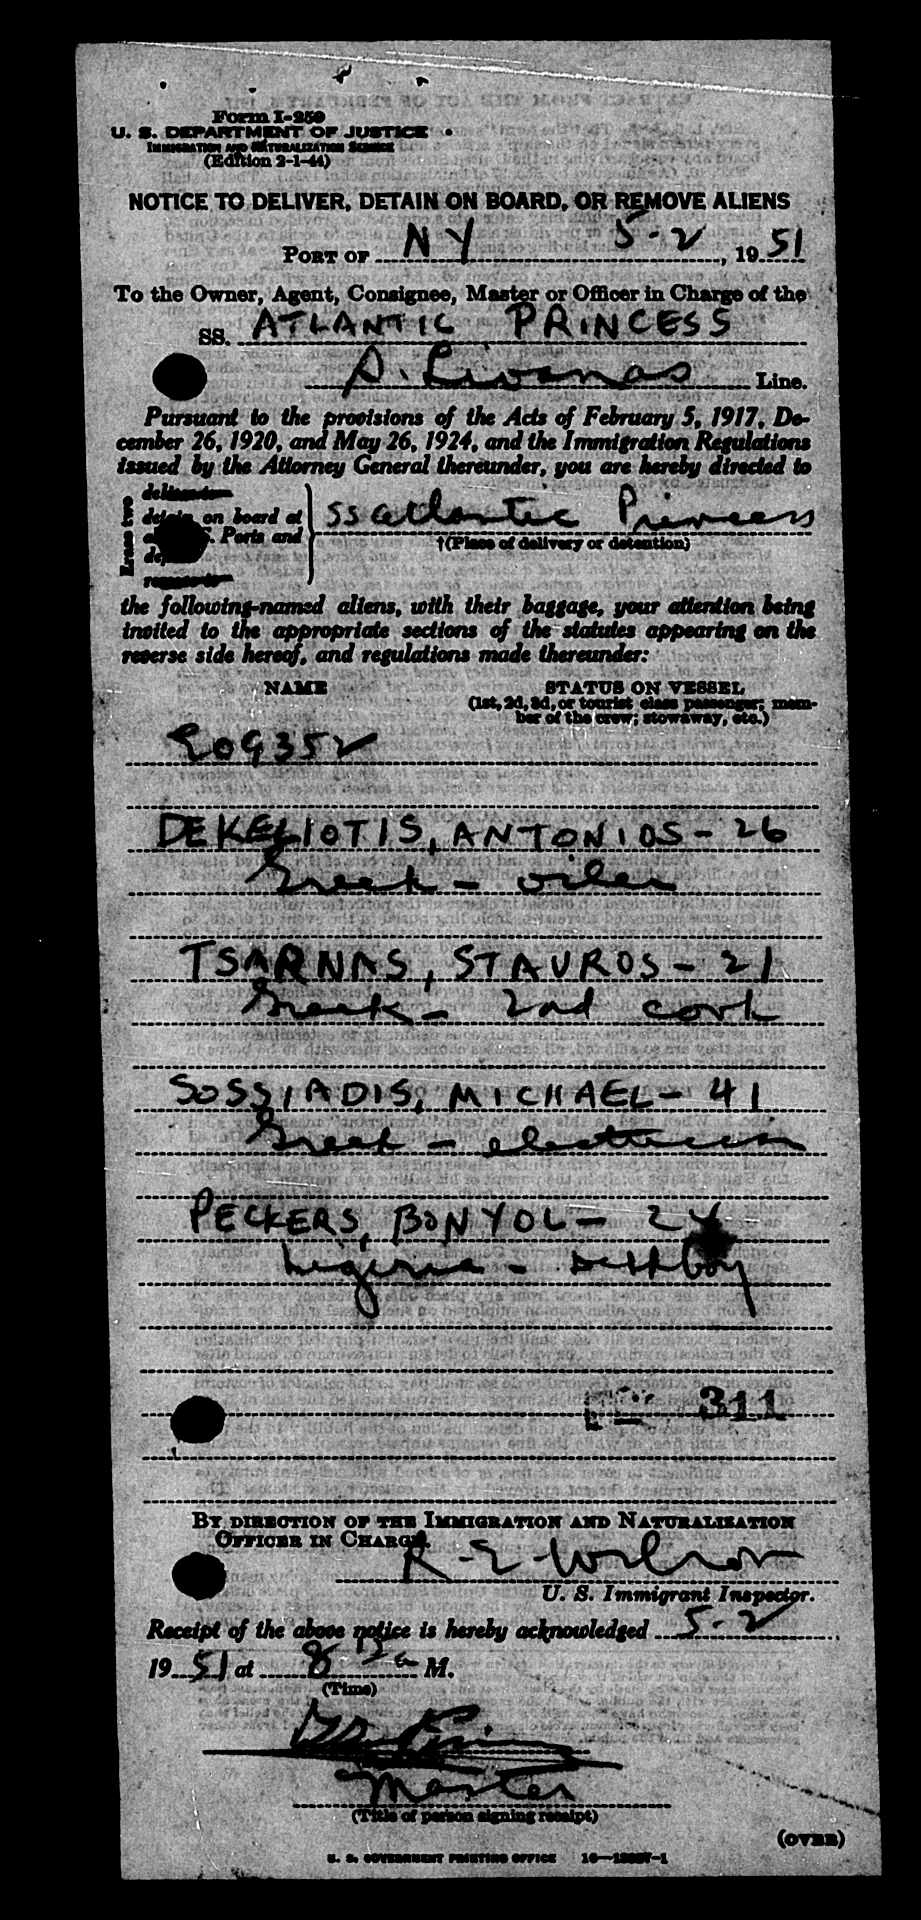 Form I-259
U. S. DEPARTMENT OF JUSTICE
IMMIGRATION AND NATURALIZATION SERVICE
(Edition 2-1-44)
NOTICE TO DELIVER, DETAIN ON BOARD, OR REMOVE ALIENS
PORT OF NY 5-2, 1951
To the Owner, Agent, Consignee, Master or Officer in Charge of the
SS. ATLANTIC PRINCESS
S. Livanas Line.
Pursuant to the provisions of the Acts of February 5, 1917, De-
cember 26, 1920, and May 26, 1924, and the Immigration Regulations
issued by the Attorney General thereunder, you are hereby directed to
Erase two
on board at
Ports and
SS Atlantic Princess
†(Place of delivery or detention)
the following-named aliens, with their baggage, your attention being
invited to the appropriate sections of the statutes appearing on the
reverse side hereof, and regulations made thereunder:
NAME STATUS ON VESSEL
(1st, 2d, 3d, or tourist class passenger; mem-
ber of the crew; stowaway, etc.)
E09352
DEKELIOTIS, ANTONIOS - 26
Greek - oiler
TSARNAS, STAUROS - 21
Greek - 2nd cook
SOSSIADIS, MICHAEL - 41
Greek - electrician
PECKERS, BONYOL -
311
BY DIRECTION OF THE IMMIGRATION AND NATURALIZATION
OFFICER IN CHARGE.
R. E. Wilson
U. S. Immigrant Inspector.
Receipt of the above notice is hereby acknowledged 5-2
1951 at 8 12a M.
(Time)
Master
(Title of person signing receipt)
(OVER)
U. S. GOVERNMENT PRINTING OFFICE